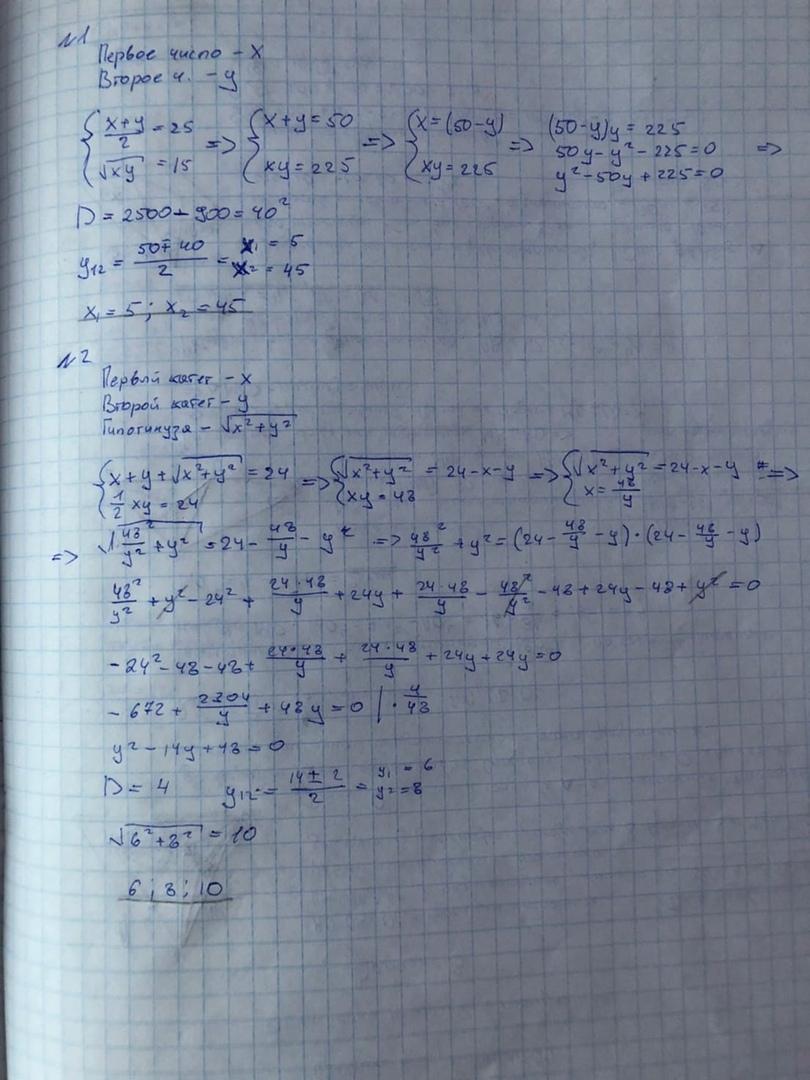 №1
Первое число – x
Второе ч. – y
{ (x+y)/2 = 25 ; √(xy) = 15 => { x+y = 50 ; xy = 225 => { x = (50-y) ; xy = 225 => (50-y)y = 225
50y - y² - 225 = 0 =>
y² - 50y + 225 = 0
D = 2500 - 900 = 40²
y₁₂ = (50 ∓ 40)/2 = x₁ = 5
x₂ = 45
x₁ = 5 ; x₂ = 45
№2
Первый катет – x
Второй катет – y
Гипотинуза – √(x²+y²)
{ x+y+√(x²+y²) = 24 ; 1/2 xy = 24 => { √(x²+y²) = 24-x-y ; xy = 48 => { √(x²+y²) = 24-x-y ; x = 48/y =>
=> √(48²/y² + y²) = 24 - 48/y - y => 48²/y² + y² = (24 - 48/y - y)·(24 - 48/y - y)
48²/y² + y² - 24² + 24·48/y + 24y + 24·48/y - 48²/y² - 48 + 24y - 48 + y² = 0
-24² - 48 - 48 + 24·48/y + 24·48/y + 24y + 24y = 0
-672 + 2304/y + 48y = 0 | · y/48
y² - 14y + 48 = 0
D = 4 y₁₂ = (14 ± 2)/2 = y₁ = 6
y₂ = 8
√(6²+8²) = 10
6 ; 8 ; 10